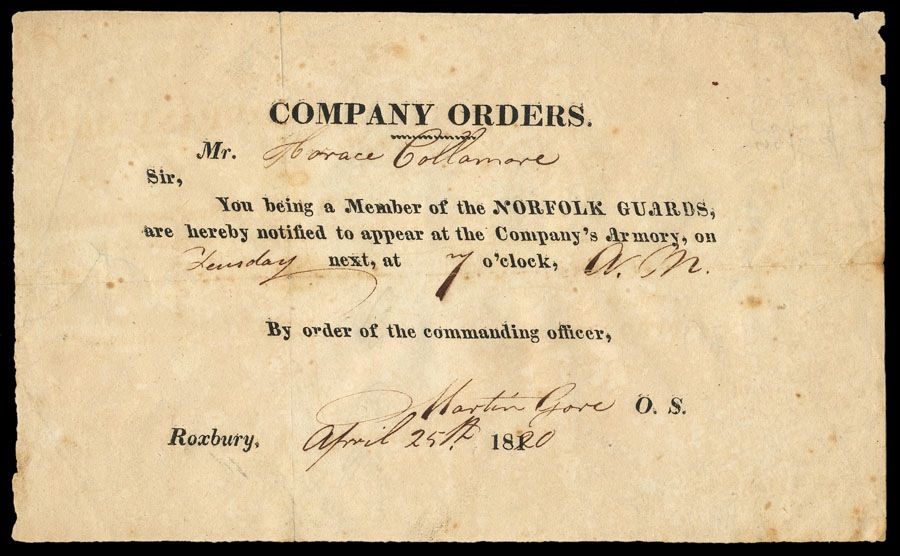 COMPANY ORDERS.
Mr. Horace Collamore
Sir,
You being a Member of the NORFOLK GUARDS,
are hereby notified to appear at the Company's Armory, on
Teusday next, at 7 o'clock, A. M.
By order of the commanding officer,
Martin Gore O. S.
Roxbury, April 25th. 1820